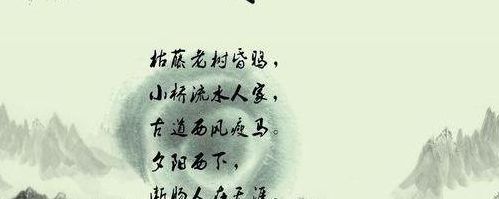 枯藤老树昏鸦，
小桥流水人家，
古道西风瘦马。
夕阳西下，
断肠人在天涯。